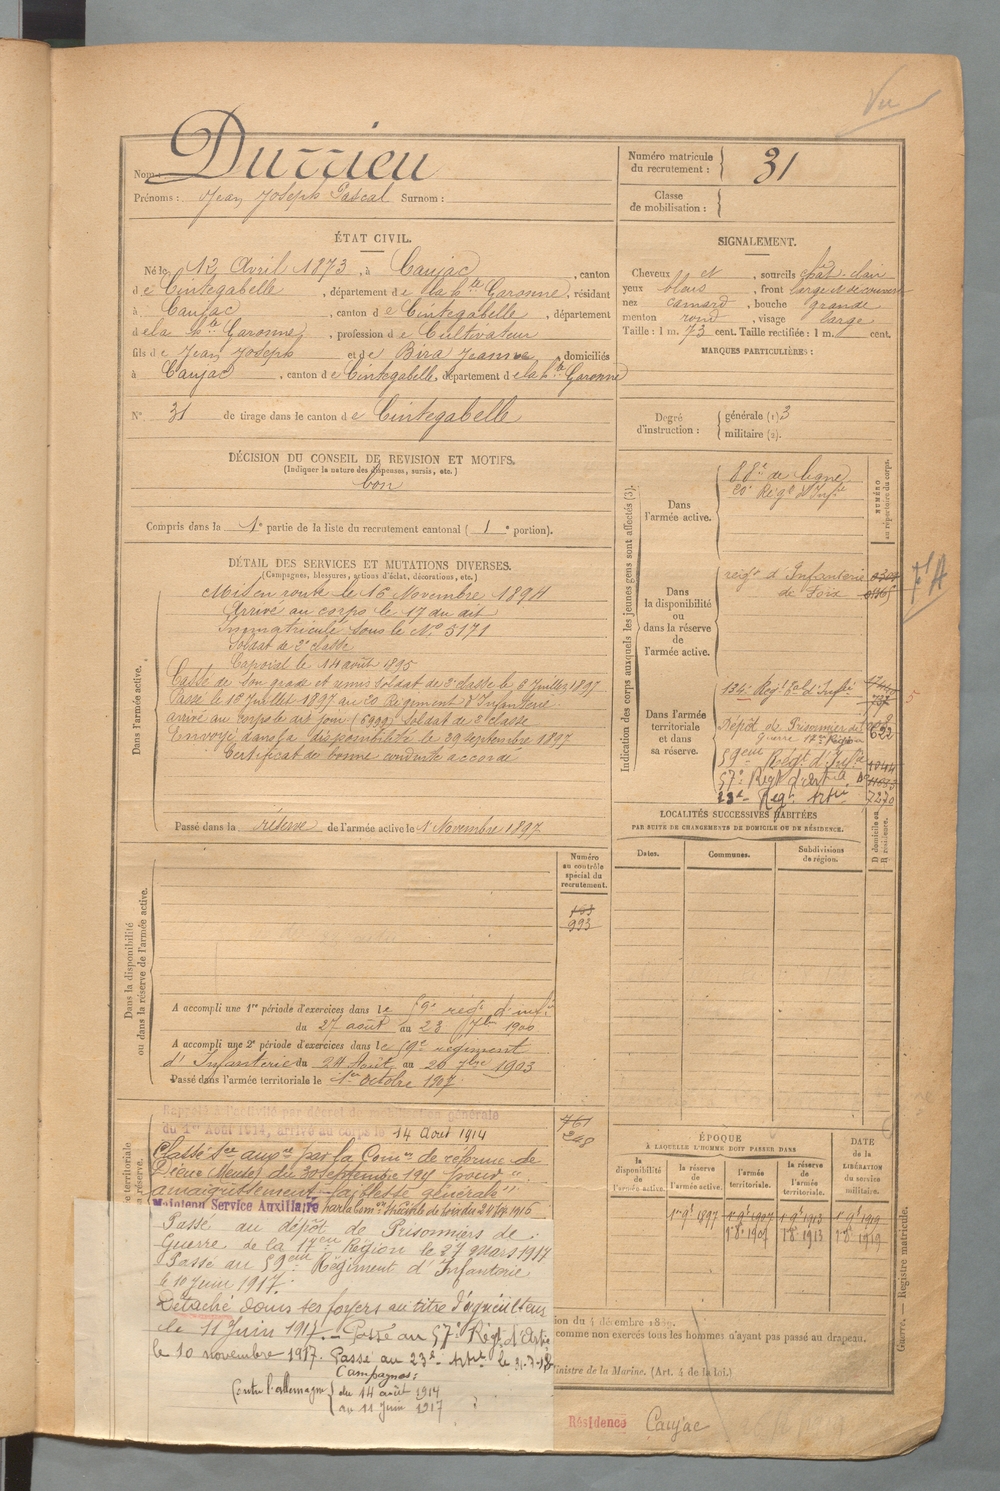 Vu
Nom : Durrieu
Prénoms : Jean Joseph Pascal Surnom :
Numéro matricule du recrutement : 31
Classe de mobilisation :
ÉTAT CIVIL.
Né le 12 Avril 1873, à Caujac, canton
de Cintegabelle, département de la hte Garonne, résidant
à Caujac, canton de Cintegabelle, département
de la hte Garonne, profession de Cultivateur
fils de Jean Joseph et de Bira Jeanne, domiciliés
à Caujac, canton de Cintegabelle, département de la hte Garonne
N° 31 de tirage dans le canton de Cintegabelle
SIGNALEMENT.
Cheveux et, sourcils chât. clair
yeux bleus, front large et découvert
nez camard, bouche grande
menton rond, visage large
Taille : 1 m. 73 cent. Taille rectifiée : 1 m. cent.
MARQUES PARTICULIÈRES :
Degré d'instruction : générale (1) 3
militaire (2).
DÉCISION DU CONSEIL DE REVISION ET MOTIFS.
(Indiquer la nature des dispenses, sursis, etc.)
bon
Compris dans la 1e partie de la liste du recrutement cantonal (1e portion).
DÉTAIL DES SERVICES ET MUTATIONS DIVERSES.
(Campagnes, blessures, actions d'éclat, décorations, etc.)
Dans l'armée active.
Mis en route le 16 Novembre 1894
Arrivé au corps le 17 du dit
Immatriculé sous le No 5171
Soldat de 2e classe
Caporal le 14 août 1895
Cassé de son grade et remis soldat de 2e classe le 6 Juillet 1897
Passé le 16 Juillet 1897 au 20 Régiment d'Infanterie
arrivé au corps le dit jour Soldat de 2e classe
Envoyé dans la disponibilité le 29 septembre 1897
Certificat de bonne conduite accordé
Passé dans la réserve de l'armée active le 1 Novembre 1897
Indication des corps auxquels les jeunes gens sont affectés (3).
NUMÉRO au répertoire du corps.
Dans l'armée active.
88e de ligne
20e Régt d'Infie
Dans la disponibilité ou dans la réserve de l'armée active.
régt d'Infanterie
de Foix
Dans l'armée territoriale et dans sa réserve.
134e Régt tal d'Infie
Dépôt de Prisonnier de
Guerre 17e Région
59eme Régt d'Infie
57e Regt d'Art
23e Regt Artie
7270
LOCALITÉS SUCCESSIVES HABITÉES
PAR SUITE DE CHANGEMENTS DE DOMICILE OU DE RÉSIDENCE.
Dates. Communes. Subdivisions de région.
D domicile ou R résidence.
Dans la disponibilité ou dans la réserve de l'armée active.
Numéro au contrôle spécial du recrutement.
993
A accompli une 1re période d'exercices dans le 59e régt d'infie
du 27 août au 23 7bre 1900
A accompli une 2e période d'exercices dans le 59e régiment
d'Infanterie du 24 Août au 20 7bre 1903
Passé dans l'armée territoriale le 1er octobre 1907
Rappelé à l'activité par décret de mobilisation générale
du 1er Août 1914, arrivé au corps le 14 Août 1914
761
248
Classé Sce auxre par la Comon de réforme de
(Meuse) du 30 septembre 1915 pour
"amaigrissement faiblesse générale"
Maintenu Service Auxiliaire
Passé au dépôt de Prisonniers de
Guerre de la 17eme Région le 27 mars 1917
Passé au 59eme Régiment d'Infanterie
le 10 Juin 1917.
Détaché dans ses foyers au titre d'agriculteur
le 11 Juin 1917. – Passé au 57e Régt d'Artie
le 10 novembre 1917. Passé au 23e Artie le 31-7-18
Campagnes :
Contre l'allemagne du 14 août 1914
au 11 Juin 1917
ÉPOQUE
À LAQUELLE L'HOMME DOIT PASSER DANS
la disponibilité de l'armée active.
la réserve de l'armée active.
l'armée territoriale.
la réserve de l'armée territoriale.
DATE de la LIBÉRATION du service militaire.
1er 9bre 1897 1er 9bre 1907 1er 9bre 1913 1er 9bre 1919
1er 8bre 1907 1er 8bre 1913 1er 8bre 1919
comme non exercés tous les hommes n'ayant pas passé au drapeau.
inistre de la Marine. (Art. 4 de la loi.)
Guerre. — Registre matricule.
Résidence Caujac